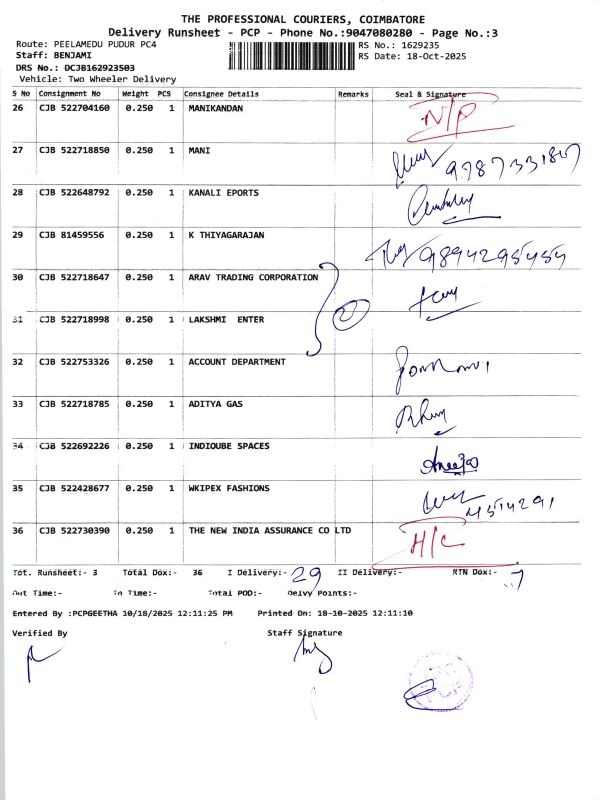 THE PROFESSIONAL COURIERS, COIMBATORE
Delivery Runsheet - PCP - Phone No.:9047080280 - Page No.:3
Route: PEELAMEDU PUDUR PC4
RS No.: 1629235
Staff: BENJAMI
RS Date: 18-Oct-2025
DRS No.: DCJB162923503
Vehicle: Two Wheeler Delivery
S No Consignment No Weight PCS Consignee Details Remarks Seal & Signature
26 CJB 522704160 0.250 1 MANIKANDAN N/P
27 CJB 522718850 0.250 1 MANI
28 CJB 522648792 0.250 1 KANALI EPORTS
29 CJB 81459556 0.250 1 K THIYAGARAJAN
30 CJB 522718647 0.250 1 ARAV TRADING CORPORATION
31 CJB 522718998 0.250 1 LAKSHMI ENTER 2
32 CJB 522753326 0.250 1 ACCOUNT DEPARTMENT
33 CJB 522718785 0.250 1 ADITYA GAS
34 CJB 522692226 0.250 1 INDIOUBE SPACES
35 CJB 522428677 0.250 1 WKIPEX FASHIONS
36 CJB 522730390 0.250 1 THE NEW INDIA ASSURANCE CO LTD H/C
Tot. Runsheet:- 3 Total Dox:- 36 I Delivery:- 29 II Delivery:- RTN Dox:- 7
Out Time:- In Time:- Total POD:- Delvy Points:-
Entered By :PCPGEETHA 10/18/2025 12:11:25 PM Printed On: 18-10-2025 12:11:10
Verified By Staff Signature